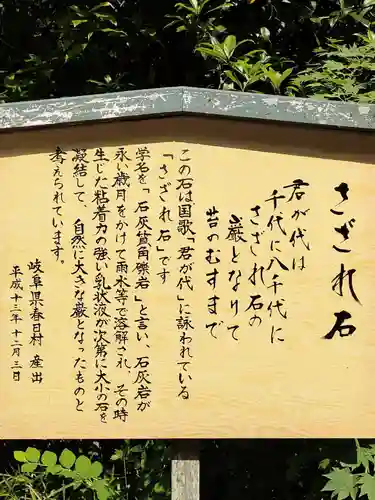 さざれ石
君が代は
千代に八千代に
さざれ石の
巌となりて
苔のむすまで
この石は国歌「君が代」に詠われている
「さざれ石」です
学名を「石灰質角礫岩」と言い、石灰岩が
永い歳月をかけて雨水等で溶解され、その時
生じた粘着力の強い乳状液が次第に大小の石を
凝結して、自然に大きな巌となったものと
考えられています。
岐阜県春日村 産出
平成十三年十二月三日